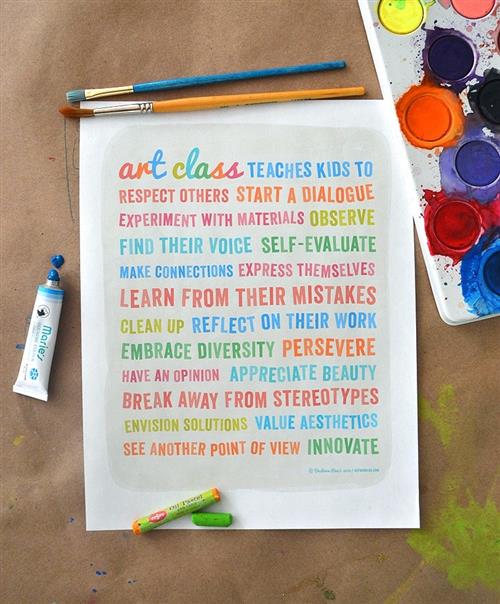 art class TEACHES KIDS TO
RESPECT OTHERS START A DIALOGUE
EXPERIMENT WITH MATERIALS OBSERVE
FIND THEIR VOICE SELF-EVALUATE
MAKE CONNECTIONS EXPRESS THEMSELVES
LEARN FROM THEIR MISTAKES
CLEAN UP REFLECT ON THEIR WORK
EMBRACE DIVERSITY PERSEVERE
HAVE AN OPINION APPRECIATE BEAUTY
BREAK AWAY FROM STEREOTYPES
ENVISION SOLUTIONS VALUE AESTHETICS
SEE ANOTHER POINT OF VIEW INNOVATE
Maries